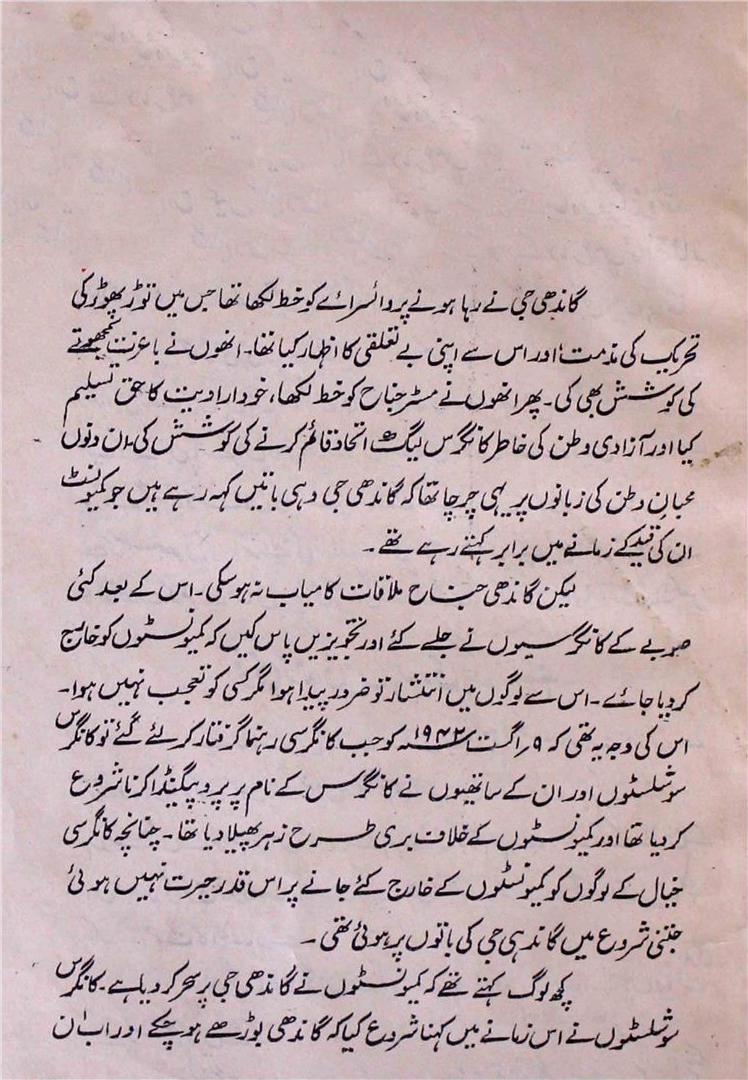 گاندھی جی نے رہا ہونے پر وائسرائے کو خط لکھا تھا جس میں توڑ پھوڑ کی
تحریک کی مذمت اور اس سے اپنی بے تعلقی کا اظہار کیا تھا۔ انھوں نے باعزت سمجھوتے
کی کوشش بھی کی۔ پھر انھوں نے مسٹر جناح کو خط لکھا، خود ارادیت کا حق تسلیم
کیا اور آزادی وطن کی خاطر کانگرس لیگ اتحاد قائم کرنے کی کوشش کی۔ ان دنوں
محبان وطن کی زبانوں پر یہی چرچا تھا کہ گاندھی جی وہی باتیں کہہ رہے ہیں جو کمیونسٹ
ان کی قید کے زمانے میں برابر کہتے رہے تھے۔
لیکن گاندھی جناح ملاقات کامیاب نہ ہوسکی۔ اس کے بعد کئی
صوبے کے کانگرسیوں نے جلسے کئے اور تجویزیں پاس کیں کہ کمیونسٹوں کو خارج
کردیا جائے۔ اس سے لوگوں میں انتشار تو ضرور پیدا ہوا مگر کسی کو تعجب نہیں ہوا۔
اس کی وجہ یہ تھی کہ ۹ اگست ۱۹۴۲ء کو جب کانگرسی رہنما گرفتار کرلئے گئے تو کانگرس
سوشلسٹوں اور ان کے ساتھیوں نے کانگرس کے نام پر پروپیگینڈا کرنا شروع
کردیا تھا اور کمیونسٹوں کے خلاف بری طرح زہر پھیلا دیا تھا۔ چنانچہ کانگرسی
خیال کے لوگوں کو کمیونسٹوں کے خارج کئے جانے پر اس قدر حیرت نہیں ہوئی
جتنی شروع میں گاندہی جی کی باتوں پر ہوئی تھی۔
کچھ لوگ کہتے تھے کہ کمیونسٹوں نے گاندھی جی پر سحر کر دیا ہے۔ کانگرس
سوشلسٹوں نے اس زمانے میں کہنا شروع کیا کہ گاندھی بوڑھے ہوچکے اور اب ان